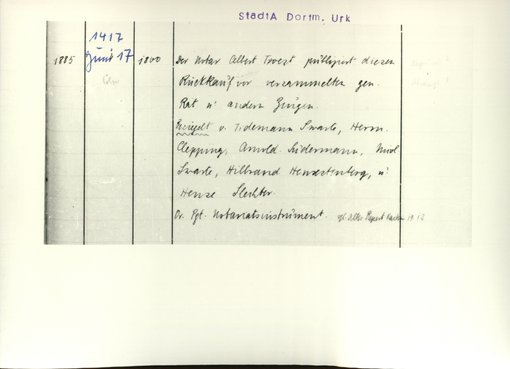 StadtA Dortm. Urk
1417
1885 Juni 17 1800 Der Notar Albert Troest publiziert diesen
Rückkauf vor versammelten gen.
Rat u. andern Zeugen.
v. Tidemann Swarte, Herm.
Clepping, Arnold Sudermann,
Swarte, Hillbrand Henxstenberg, u.
Henze Slechter.
Or. Pgt. Notariatsinstrument.